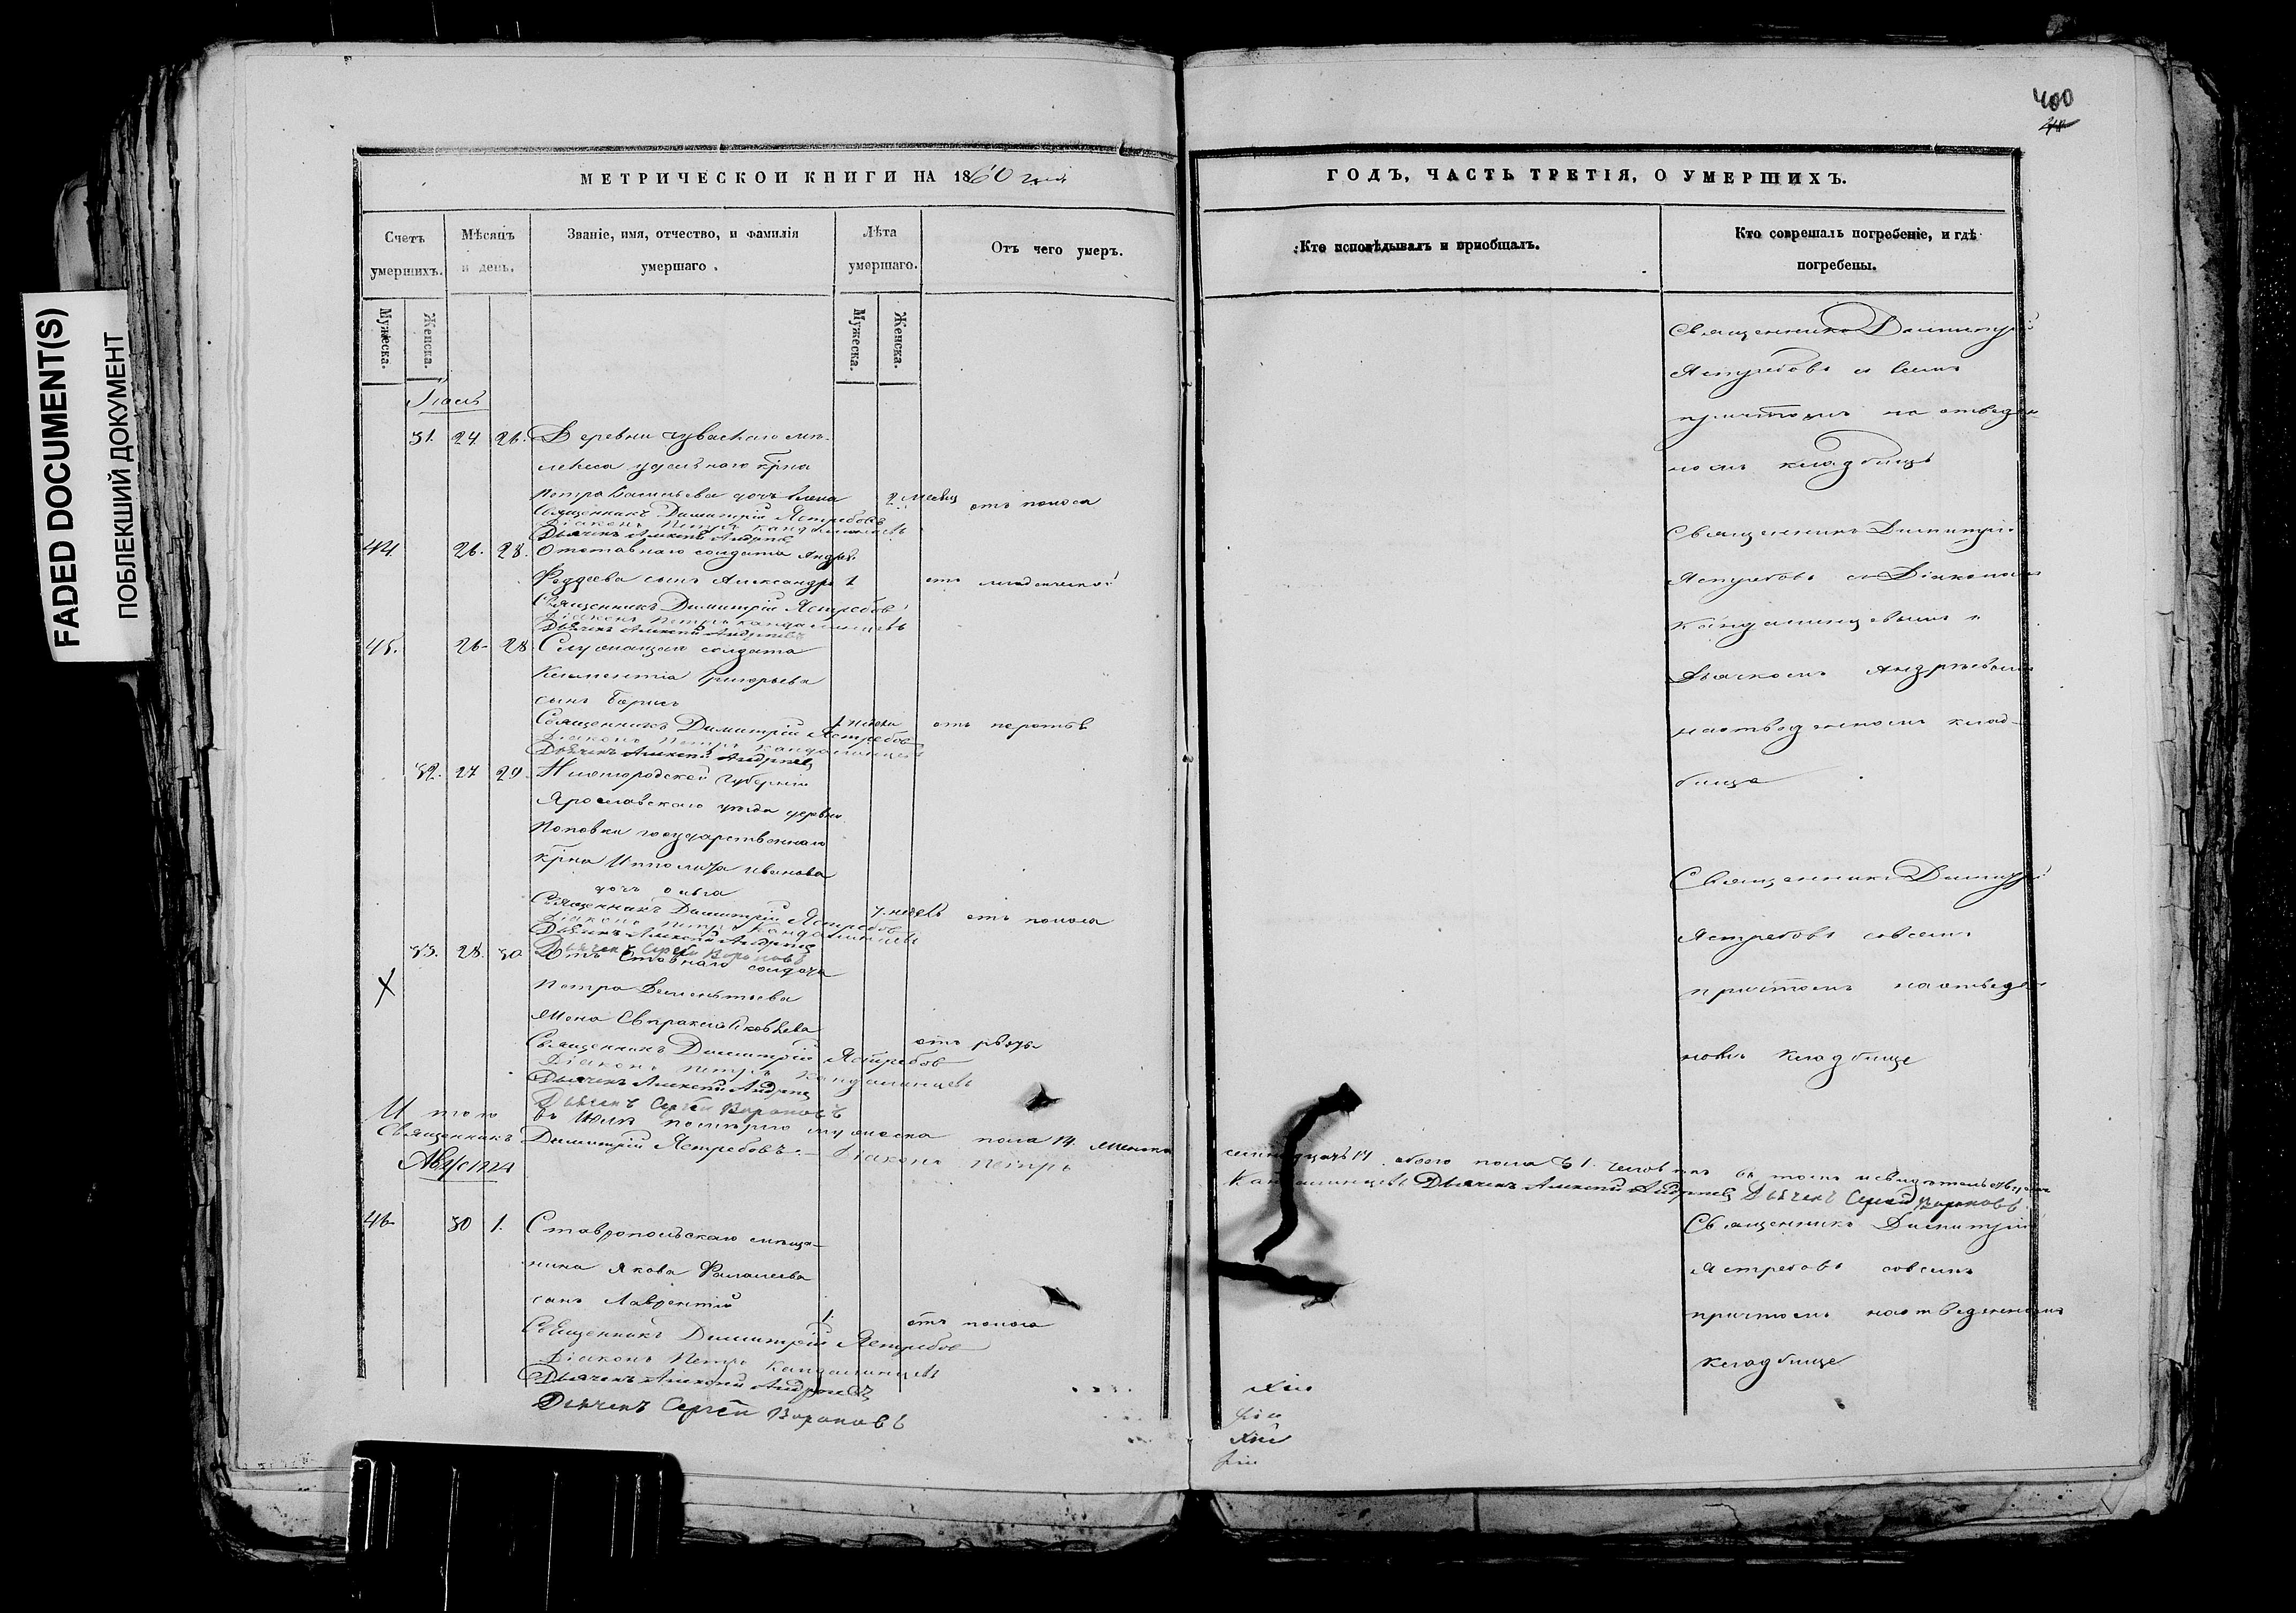 FADED DOCUMENT(S)
ПОБЛЕКШИЙ ДОКУМЕНТ
МЕТРИЧЕСКОЙ КНИГИ НА 1860 года
Счетъ умершихъ.
Мѣсяцъ и день.
Званіе, имя, отчество, и фамилія умершаго.
Лѣта умершаго.
Отъ чего умеръ.
Мужеска.
Женска.
Мужеска.
Женска.
Іюль
31. 24. 26. Деревни чуваскаго
удѣльнаго крна
Петра Васильева дочь Елена 2 месяц отъ поноса
Священникъ Димитрій Ястребовъ
Діаконъ Петръ Кандалинцевъ
Дьячекъ Алексѣй Андреевъ
44. 26. 28. Отставнаго солдата Андрея
Фаддеева сынъ Александръ 1 отъ младенческой
Священникъ Димитрій Ястребовъ
Діаконъ Петръ Кандалинцевъ
Дьячекъ Алексѣй Андреевъ
45. 26. 28 Служащаго солдата
Климентія Григорьева
сынъ Борисъ
отъ
Священникъ Димитрій Ястребовъ
Діаконъ Петръ Кандалинцевъ
Дьячекъ Алексѣй Андреевъ
32. 27 29. Нижегородской Губерніи
Ярославскаго уѣзда деревни
Поповки государственнаго
крна Ипполита Иванова
дочь Ольга
7. недель отъ поноса
Священникъ Димитрій Ястребовъ
Діаконъ Петръ Кандалинцевъ
Дьячекъ Алексѣй Андреевъ
Дьячекъ Сергѣй Вороновъ
33. 28. 30 Отставнаго солдата
Х Петра Дементьева
жена Евпраксія Яковлева
отъ
Священникъ Димитрій Ястребовъ
Діаконъ Петръ Кандалинцевъ
Дьячекъ Алексѣй Андреевъ
Дьячекъ Сергѣй Вороновъ
Итого въ Іюлѣ померло мужеска пола 14. женска
Священникъ Димитрій Ястребовъ. Діаконъ Петръ
Августа
46 30 1. Ставропольскаго мѣща-
нина Якова
сынъ Лаврентій
1. отъ поноса
Священникъ Димитрій Ястребовъ
Діаконъ Петръ Кандалинцевъ
Дьячекъ Алексѣй Андреевъ
Дьячекъ Сергѣй Вороновъ
400
ГОДЪ, ЧАСТЬ ТРЕТІЯ, О УМЕРШИХЪ.
Кто исповѣдывалъ и пріобщалъ.
Кто совершалъ погребеніе, и гдѣ погребены.
Священникъ Димитрій
Ястребовъ со всемъ
причтомъ на отведен
номъ кладбищѣ
Священникъ Димитрій
Ястребовъ съ Діакономъ
Кандалинцевымъ и
Дьячкомъ Андреевымъ
на отведенномъ клад-
бище
Священникъ Димитрій
Ястребовъ со всемъ
причтомъ на отведен
номъ кладбище
обоего пола 31. въ томъ и свидѣтельствуемъ
Кандалинцевъ Дьячекъ Алексѣй Андреевъ Дьячекъ Сергѣй Вороновъ
Священникъ Димитрій
Ястребовъ со всемъ
причтомъ на отведенномъ
кладбище